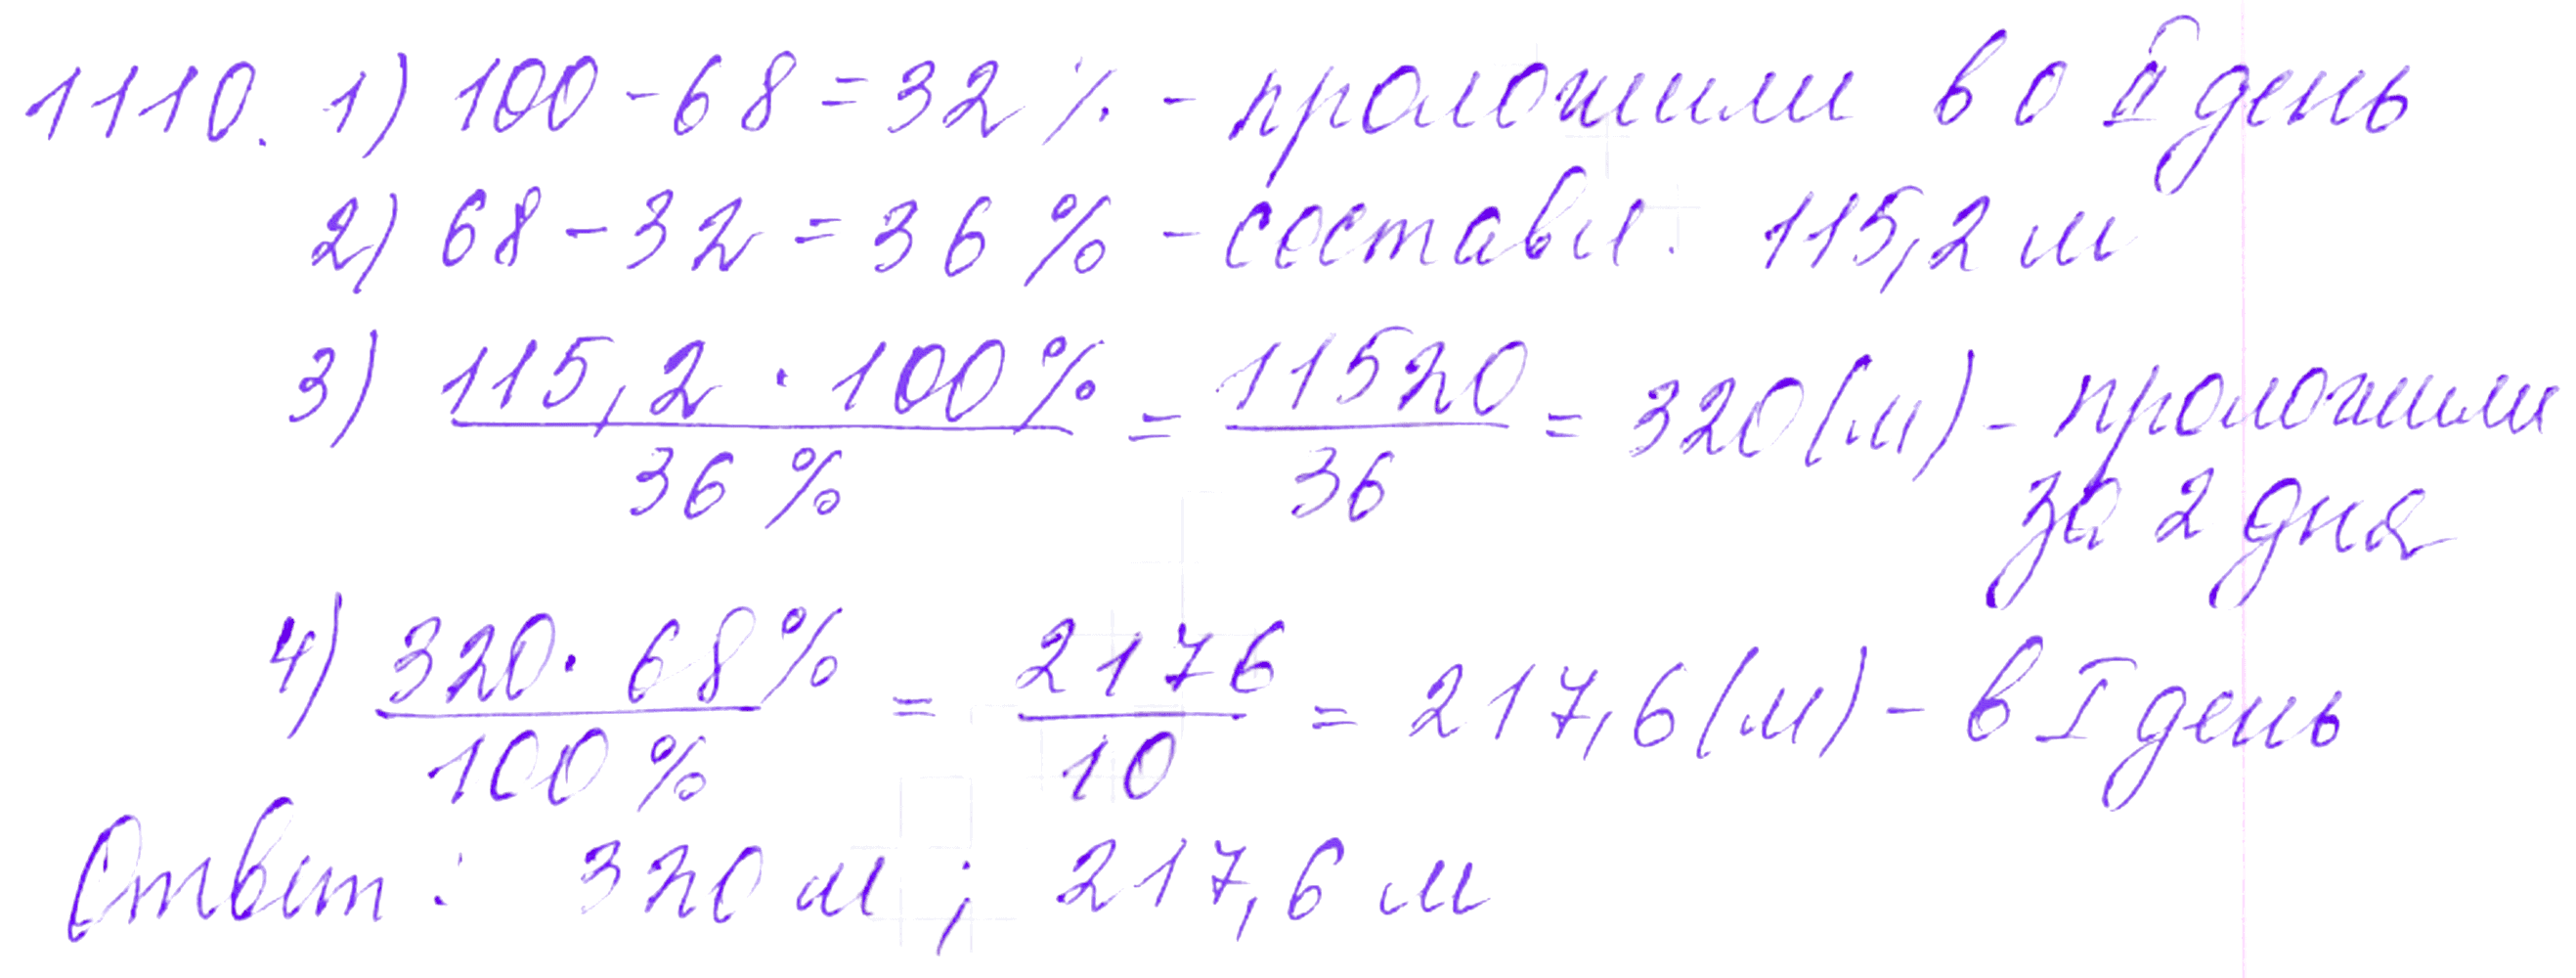 1110. 1) 100 - 68 = 32 % - проложили во II день
2) 68 - 32 = 36 % - составл. 115,2 м
3) 115,2 · 100% / 36 % = 11520 / 36 = 320 (м) - проложили
за 2 дня
4) 320 · 68% / 100 % = 2176 / 10 = 217,6 (м) - в I день
Ответ: 320 м; 217,6 м